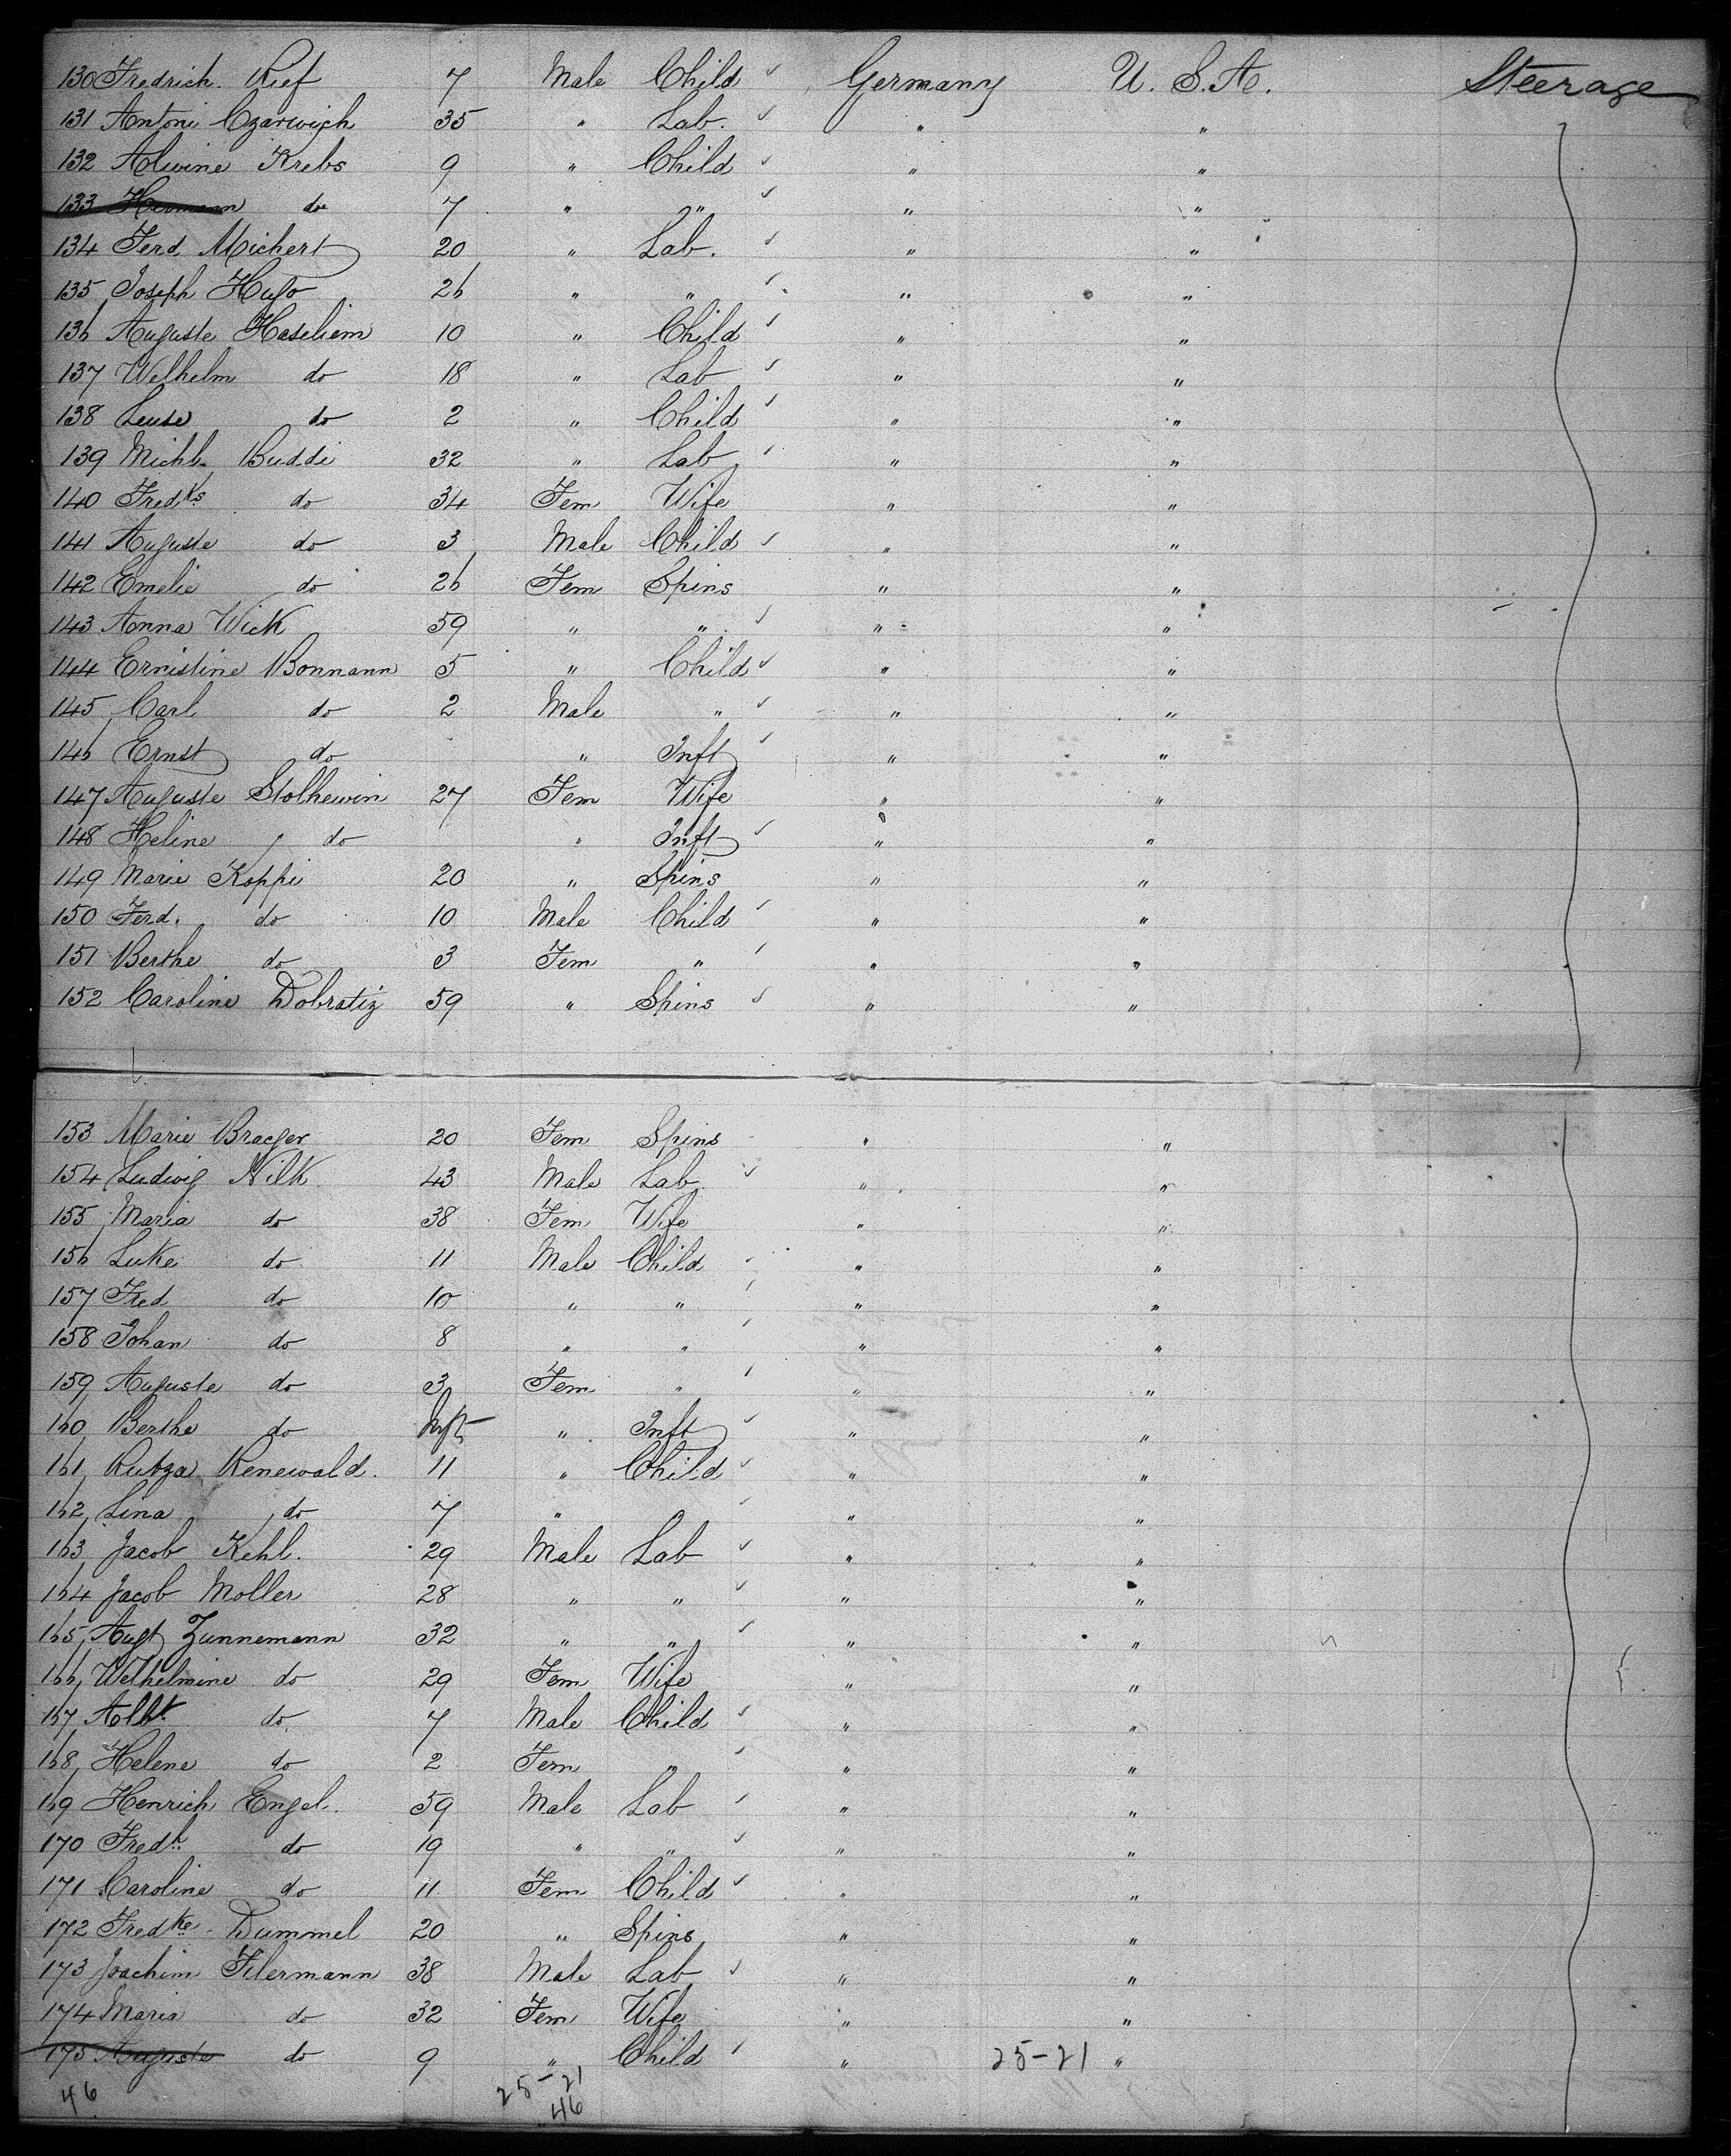 130 Fredrich. Rief 7 Male Child ✓ Germany U. S. A. Steerage
131 Antoni Czarwich 35 " Lab. ✓ " "
132 Alwine Krebs 9 " Child ✓ " "
133 Hermann do 7 " " ✓ " "
134 Ferd Michert 20 " Lab. ✓ " "
135 Joseph Hugo 26 " " ✓ " "
136 Auguste Haseliem 10 " Child ✓ " "
137 Welhelm do 18 " Lab ✓ " "
138 Leuse do 2 " Child ✓ " "
139 Michl. Buddi 32 " Lab ✓ " "
140 Fredks do 34 Fem Wife " "
141 Auguste do 3 Male Child ✓ " "
142 Emelie do 26 Fem Spins " "
143 Anna Wick 59 " " ✓ " "
144 Ernistine Bonnann 5 " Child ✓ " "
145 Carl do 2 Male " ✓ " "
146 Ernst do " Inft ✓ " "
147 Auguste Stolhewin 27 Fem Wife " "
148 Heline do " Inft ✓ " "
149 Marie Koppi 20 " Spins " "
150 Ferd. do 10 Male Child ✓ " "
151 Berthe do 3 Fem " ✓ " "
152 Caroline Dobratiz 59 " Spins ✓ " "
153 Marie Braeger 20 Fem Spins " "
154 Ludwig Nilk 43 Male Lab. ✓ " "
155 Maria do 38 Fem Wife " "
156 Luke do 11 Male Child ✓ " "
157 Fred do 10 " " ✓ " "
158 Johan do 8 " " ✓ " "
159 Auguste do 3 Fem " ✓ " "
160 Berthe do Inft " Inft ✓ " "
161 Renewald. 11 " Child ✓ " "
162 Lina do 7 " ✓ " "
163 Jacob Kehl. 29 Male Lab ✓ " "
164 Jacob Moller 28 " " ✓ " "
165 Augt Zunnemann 32 " " ✓ " "
166 Welhelmine do 29 Fem Wife " "
167 Albt do 7 Male Child ✓ " "
168 Helene do 2 Fem " ✓ " "
169 Henrich Engel. 59 Male Lab ✓ " "
170 Fredk do 19 " " ✓ " "
171 Caroline do 11 Fem Child ✓ " "
172 Fredke Dummel 20 " Spins " "
173 Joachim Filermann 38 Male Lab ✓ " "
174 Maria do 32 Fem Wife " "
175 Auguste do 9 " Child ✓ " 25-21 "
46 25-21
46